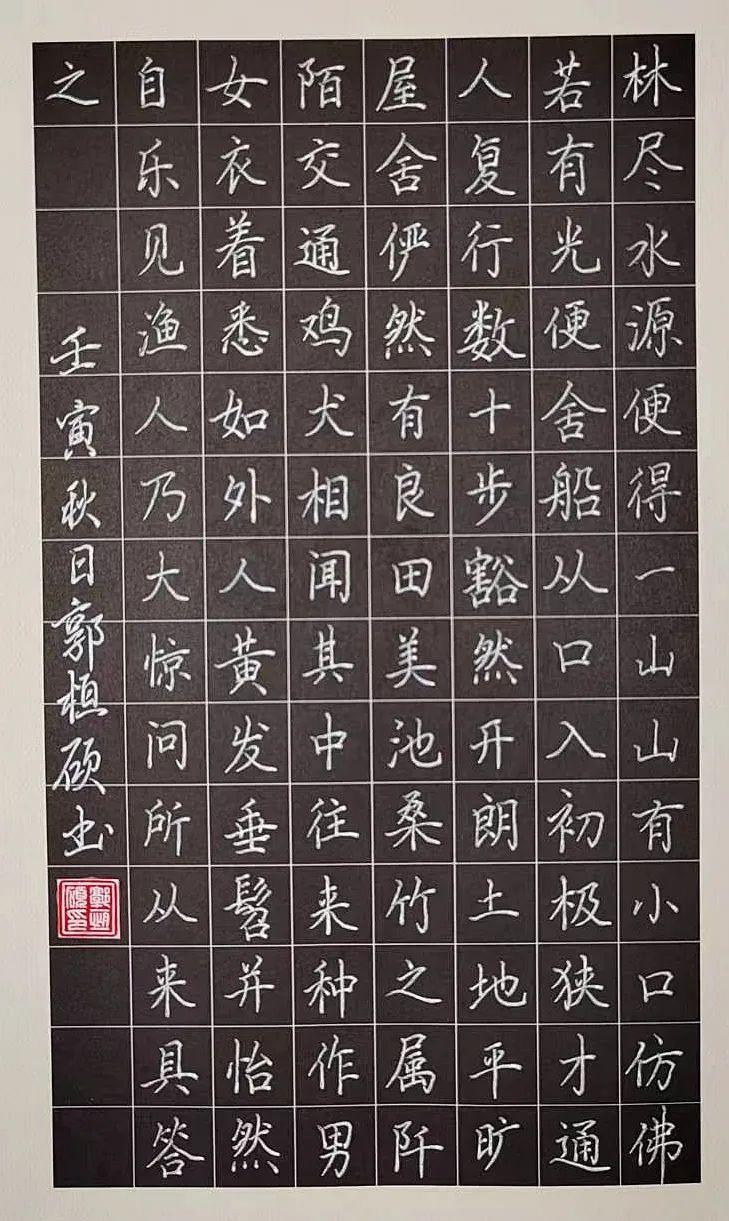 林尽水源便得一山山有小口仿佛
若有光便舍船从口入初极狭才通
人复行数十步豁然开朗土地平旷
屋舍俨然有良田美池桑竹之属阡
陌交通鸡犬相闻其中往来种作男
女衣着悉如外人黄发垂髫并怡然
自乐见渔人乃大惊问所从来具答
之
壬寅秋日郭桓硕书